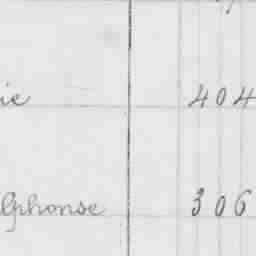 ie 404
lphonse 306